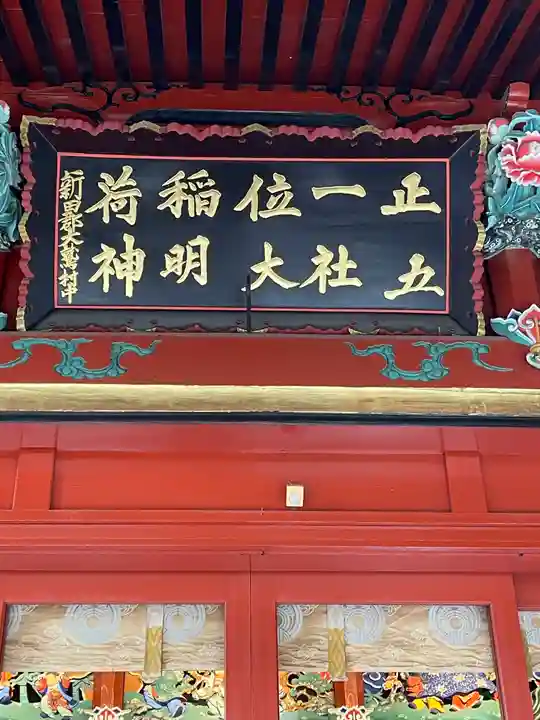 正一位稲荷
五社大明神
新田郡大鷲村中